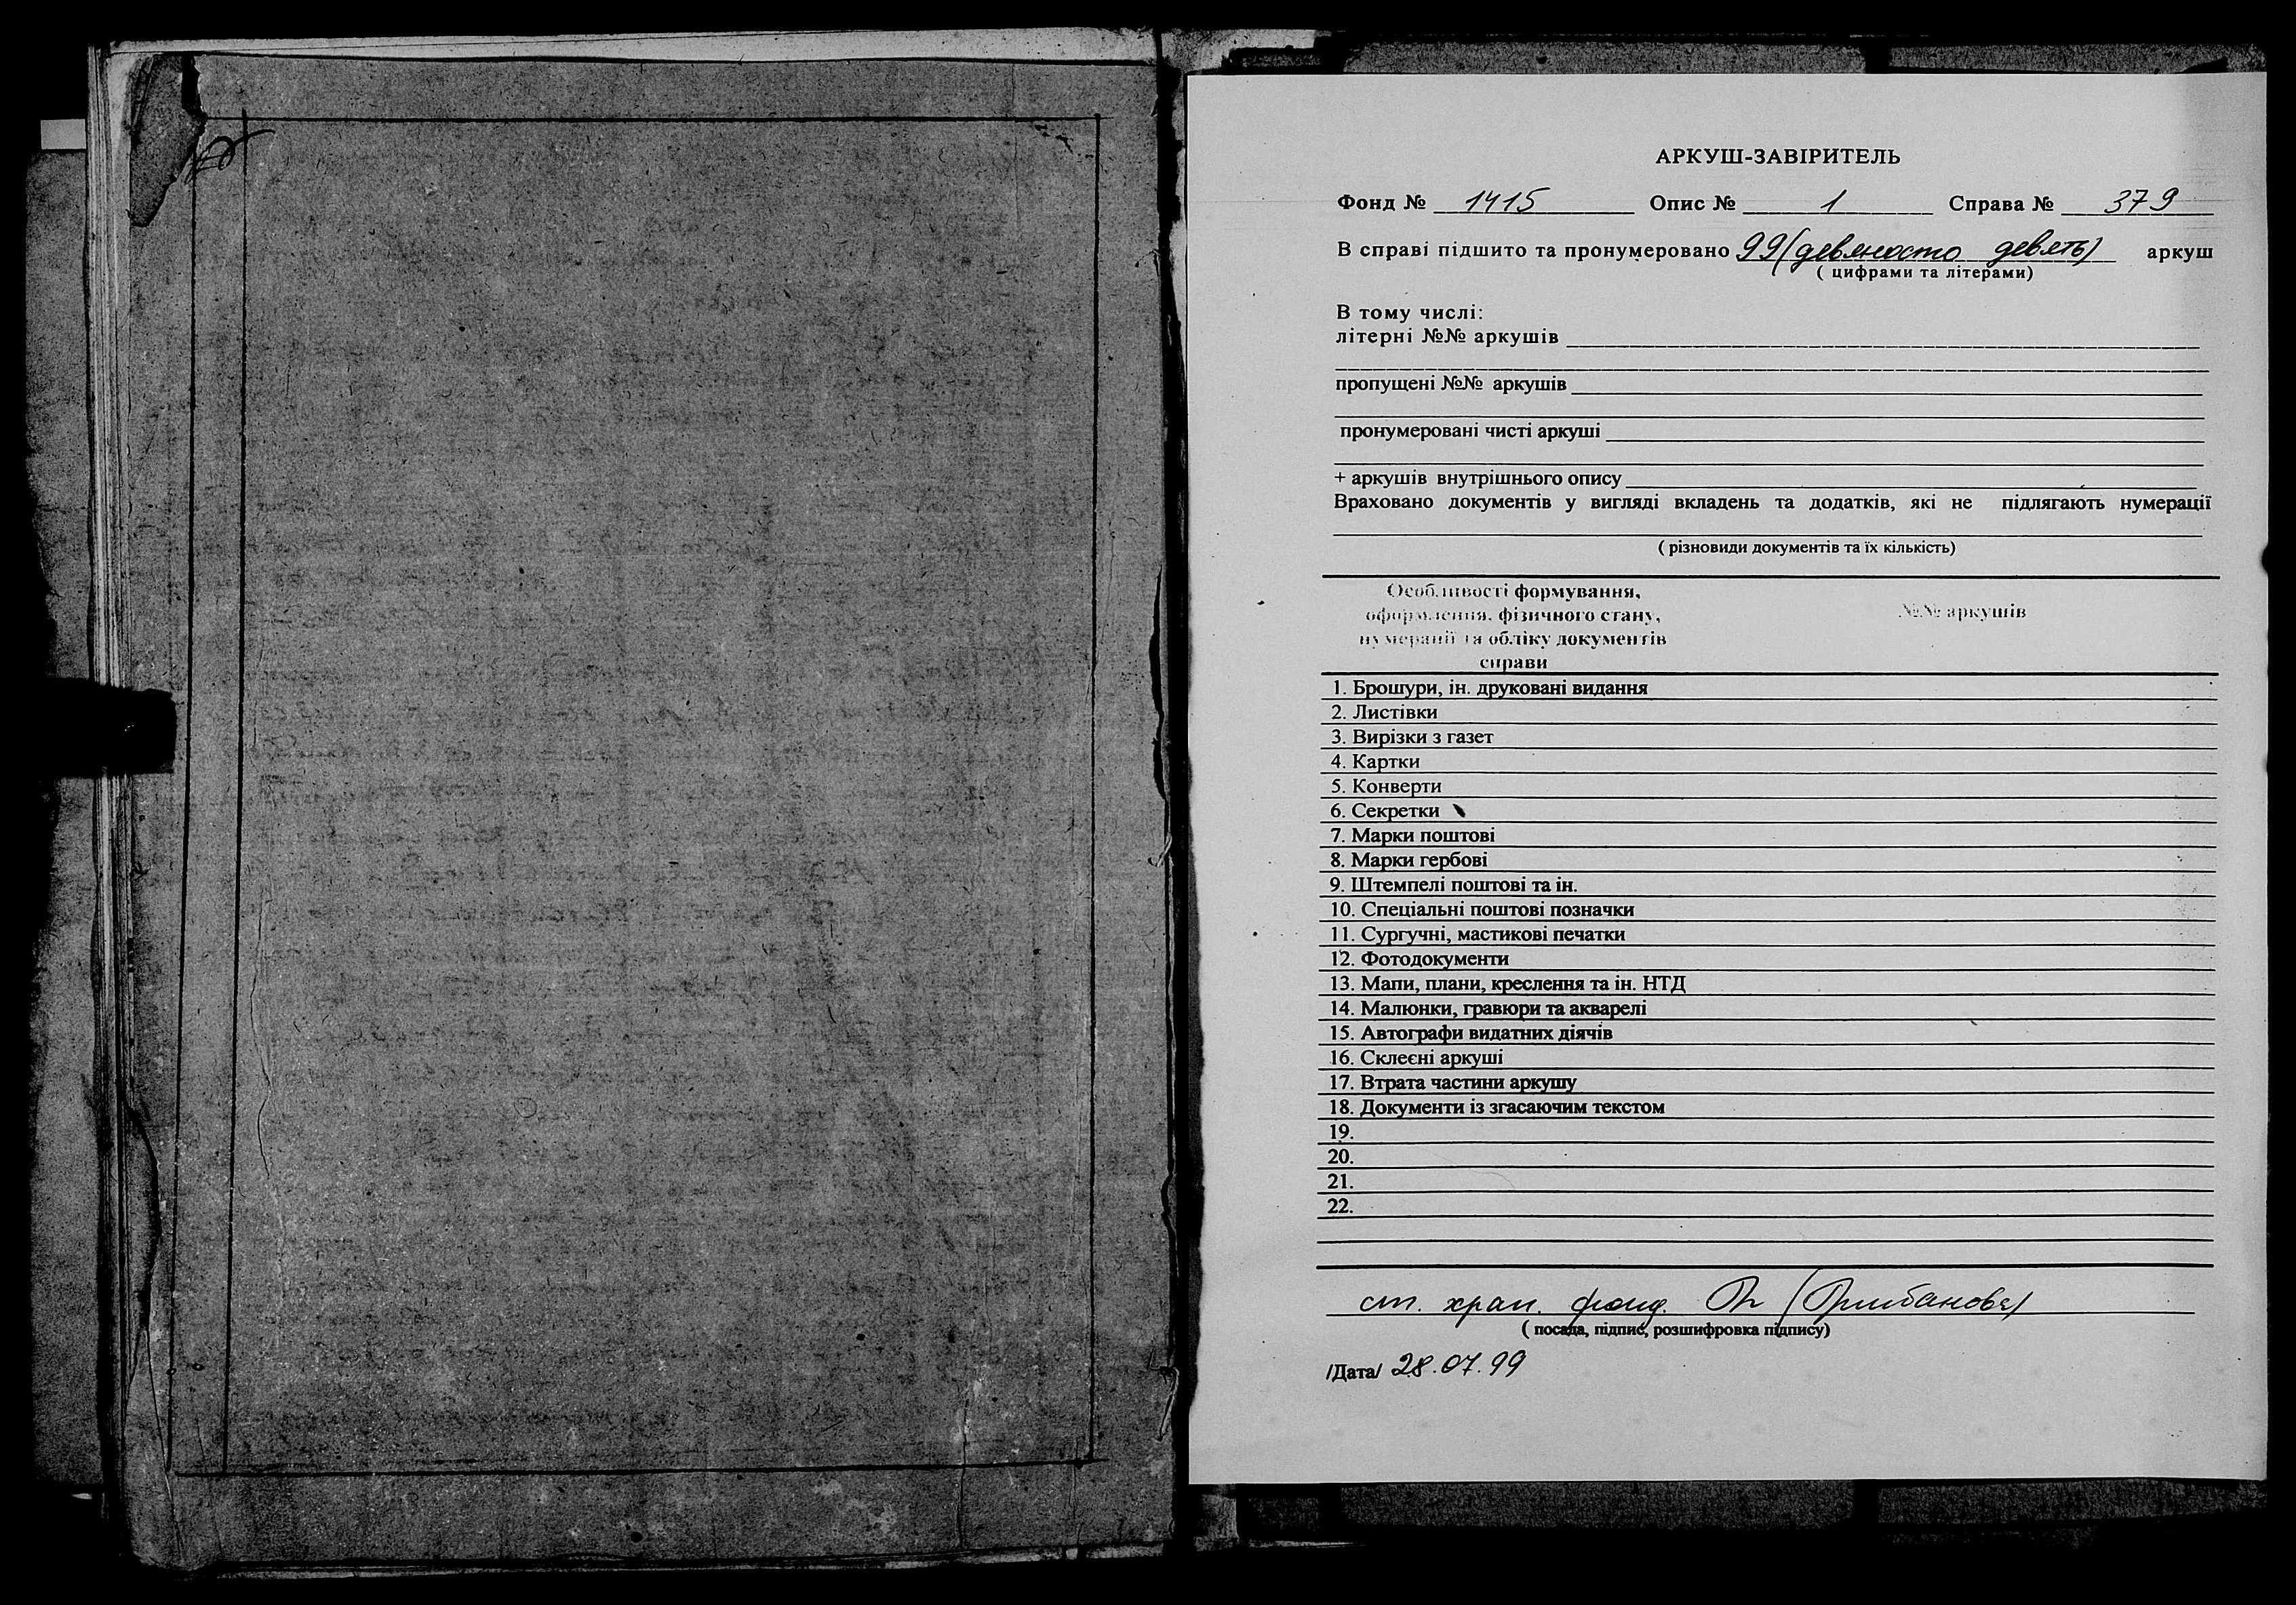 АРКУШ-ЗАВІРИТЕЛЬ
Фонд № 1415 Опис № 1 Справа № 379
В справі підшито та пронумеровано 99 (девяносто девять) аркуш
( цифрами та літерами)
В тому числі:
літерні №№ аркушів
пропущені №№ аркушів
пронумеровані чисті аркуші
+ аркушів внутрішнього опису
Враховано документів у вигляді вкладень та додатків, які не підлягають нумерації
( різновиди документів та їх кількість)
Особливості формування,
оформлення, фізичного стану,
нумерації та обліку документів
справи
№№ аркушів
1. Брошури, ін. друковані видання
2. Листівки
3. Вирізки з газет
4. Картки
5. Конверти
6. Секретки
7. Марки поштові
8. Марки гербові
9. Штемпелі поштові та ін.
10. Спеціальні поштові позначки
11. Сургучні, мастикові печатки
12. Фотодокументи
13. Мапи, плани, креслення та ін. НТД
14. Малюнки, гравюри та акварелі
15. Автографи видатних діячів
16. Склеєні аркуші
17. Втрата частини аркушу
18. Документи із згасаючим текстом
19.
20.
21.
22.
ст. хран. фонд.
( посада, підпис, розшифровка підпису)
/Дата/ 28.07.99